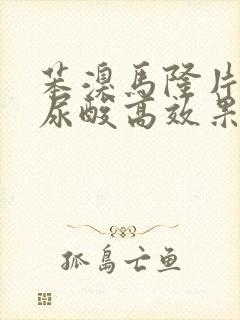 苯溴馬隆片
尿酸高效果
孤島亡鱼